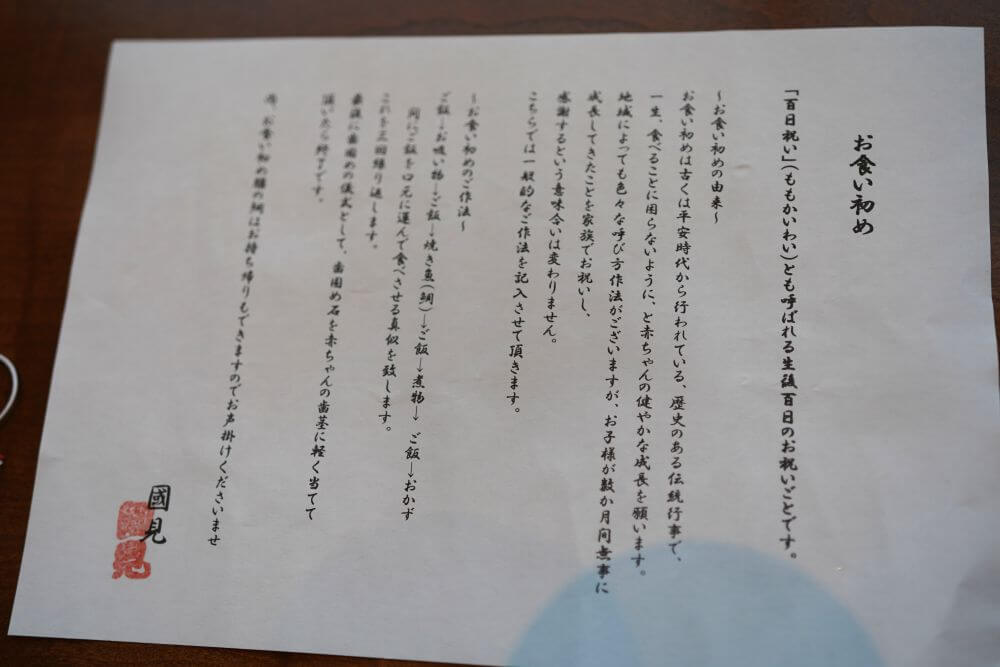 お食い初め
「百日祝い」(ももかいわい)とも呼ばれる生後百日のお祝いごとです。
～お食い初めの由来～
お食い初めは古くは平安時代から行われている、歴史のある伝統行事で、
一生、食べることに困らないように、と赤ちゃんの健やかな成長を願います。
地域によっても色々な呼び方作法がございますが、お子様が数か月間無事に
成長してきたことを家族でお祝いし、
感謝するという意味合いは変わりません。
こちらでは一般的なご作法を記入させて頂きます。
～お食い初めのご作法～
ご飯→お吸い物→ご飯→焼き魚(鯛)→ご飯→煮物→ご飯→おかず
間にご飯を口元に運んで食べさせる真似を致します。
これを三回繰り返します。
最後に歯固めの儀式として、歯固め石を赤ちゃんの歯茎に軽く当てて
頂いたら終了です。
尚、お食い初め膳の鯛はお持ち帰りもできますのでお声掛けくださいませ
國見